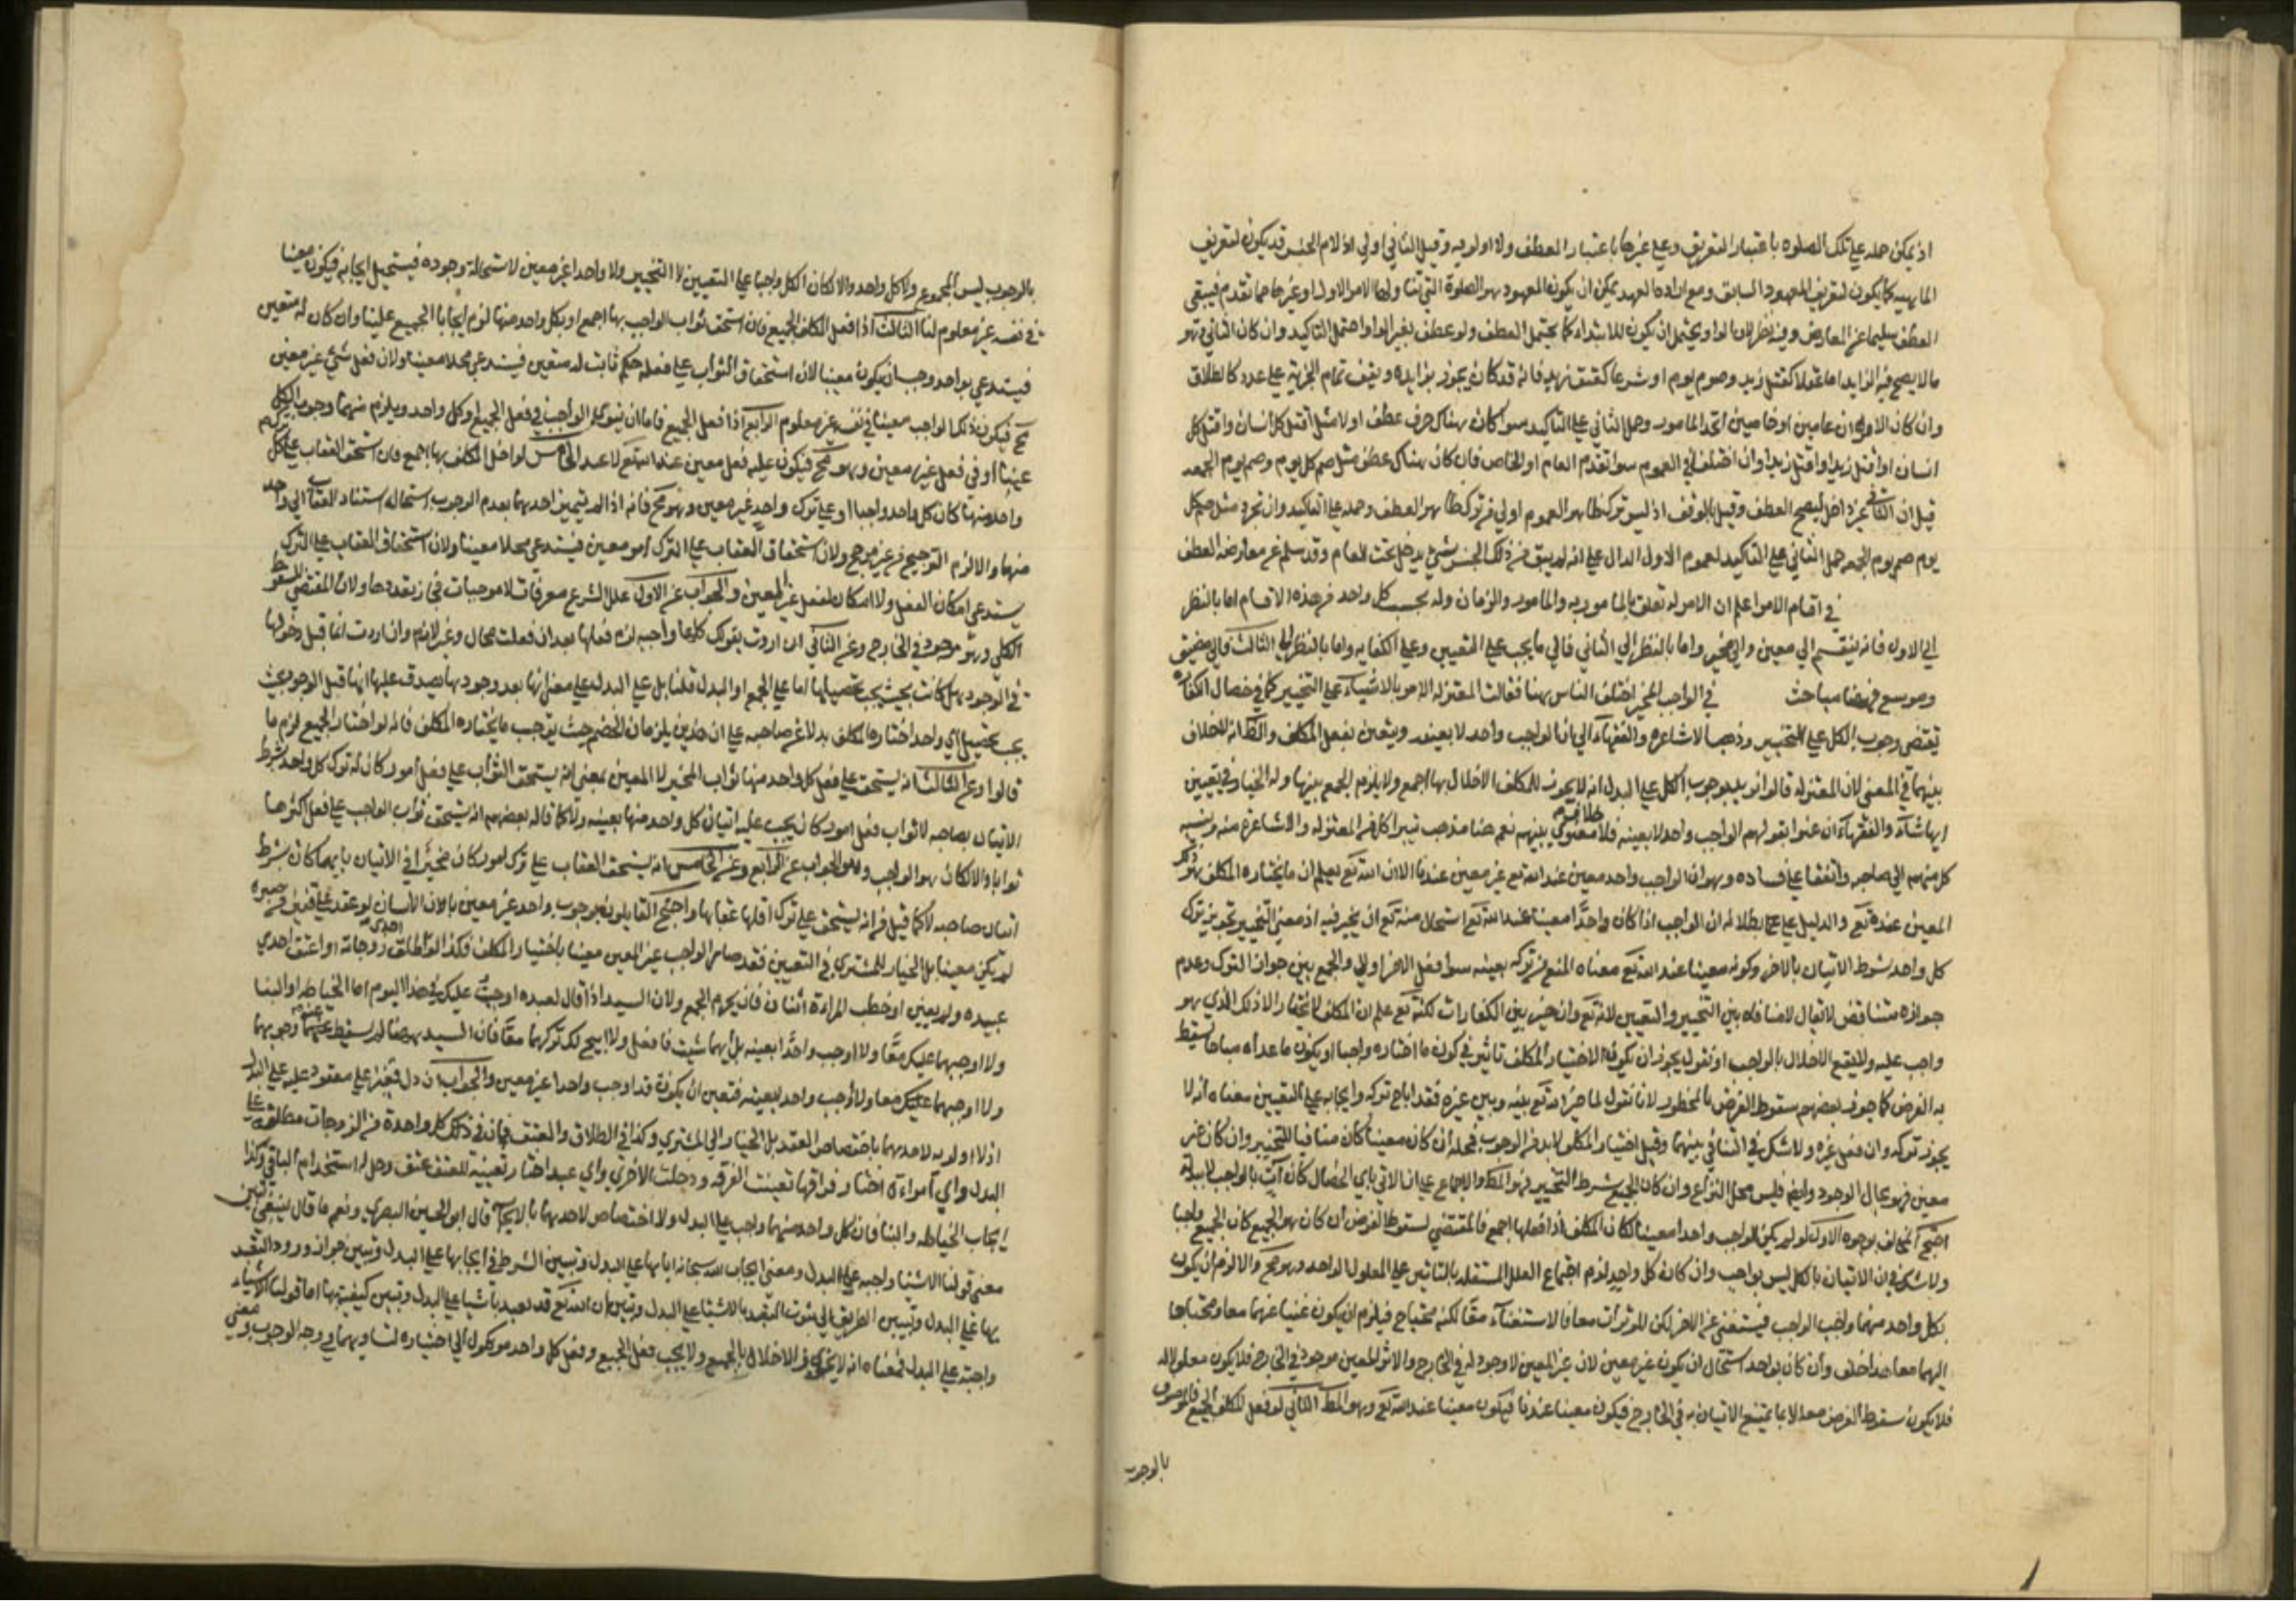 اذ يمكن حمله على تلك الصلوه باعتبار التعريف وعلى غيرها باعتبار العطف ولا اولويه وقيل الثاني اولى اذ لام الجنس قد يكون لتعريف
الماهيه كما يكون لتعريف المعهود السابق ومع ارادة العهد يمكن ان يكون المعهود هو الصلوة التي تناولها الامر الاول او غيرها مما تقدم فيبقى
العطف سليما عن المعارض وفيه نظر لان الواو يحتمل ان يكون للابتداء كما يحتمل العطف ولو عطف بغير الواو احتمل التاكيد وان كان الثاني هو
ما لا يصح فيه الزايد اما عقلا كقتل زيد وصوم يوم او شرعا كعتق زيد فانه قد كان يجوز تزايده ويقف تمام الحرية على عدد كالطلاق
وان كان الامران عامين او خاصين اتحد المامور وحمل الثاني على التاكيد سوا كان هناك حرف عطف او لا مثل اقتل كل انسان واقتل كل
انسان او اقتل زيدا واقتل زيدا وان اختلف في العموم سوا تقدم العام او الخاص فان كان هناك عطف مثل صم كل يوم وصم يوم الجمعه
قيل ان الثاني غير داخل ليصح العطف وقيل بالوقف اذ ليس ترك ظاهر العموم اولى من ترك ظاهر العطف وحمله على التاكيد وان تجرد مثل صم كل
يوم صم يوم الجمعه حمل الثاني على التاكيد لعموم الاول الدال على انه لم يبق من ذلك الجنس شيء يدخل تحت العام وقد سلم عن معارضة العطف
في اقسام الامر اعلم ان الامر له تعلق بالمامور به والمامور والزمان وله بحسب كل واحد من هذه الاقسام اما بالنظر
الى الاول فانه ينقسم الى معين والى مخير واما بالنظر الى الثاني فالى ما يجب على التعيين وعلى الكفايه واما بالنظر الى الثالث فالى مضيق
وموسع فهنا مباحث في الواجب المخير اختلف الناس هنا فقالت المعتزله الامر بالاشياء على التخيير كما في خصال الكفاره
يقتضي وجوب الكل على التخيير وذهب الاشاعره والفقهاء الى ان الواجب واحد لا بعينه ويتعين بفعل المكلف والظ انه لا خلاف
بينهما في المعنى لان المعتزله قالوا نريد بوجوب الكل على البدل انه لا يجوز للمكلف الاخلال بها اجمع ولا يلزم الجمع بينها وله الخيار في تعيين
ايها شاء والفقهاء ان عنوا بقولهم الواجب واحد لا بعينه فلا خلاف معنوي بينهم نعم هنا مذهب تبرا كل من المعتزله والاشاعره منه ونسبه
كل منهم الى صاحبه واتفقا على فساده وهو ان الواجب واحد معين عند الله تع غير معين عندنا الا ان الله تع يعلم ان ما يختاره المكلف هو ذلك
المعين عنده تع والدليل على بطلانه ان الواجب اذا كان واحدا معينا عند الله تع استحال منه تع ان يخير فيه اذ معنى التخيير تجويز ترك
كل واحد بشرط الاتيان بالاخر وكونه معينا عند الله تع معناه المنع من تركه بعينه سوا فعل الاخر او لا والجمع بين جواز الترك وعدم
جوازه متناقض لا يقال لا منافاه بين التخيير والتعيين لانه تع وان خير بين الكفارات لكنه تع علم ان المكلف لا يختار الا ذلك الذي هو
واجب عليه ولا يقع الاخلال بالواجب او نقول يجوز ان يكون لاختيار المكلف تاثير في كون ما اختاره واجبا او يكون ما عداه مباحا يسقط
به الفرض كما جوز بعضهم سقوط الفرض بالمحظور لانا نقول لما خير الله تع بينه وبين غيره فقد اباح تركه وايجابه على التعيين معناه انه لا
يجوز تركه وان فعل غيره ولا شك في التنافي بينهما وقبل اختيار المكلف لا بد من الوجوب فمحله ان كان معينا كان منافيا للتخيير وان كان غير
معين فهو محال الوجود وايض فليس محل النزاع وان كان الجميع بشرط التخيير فهو المط والاجماع على ان الاتي باي الخصال كان آت بالواجب
احتج المخالف بوجوه الاول لو لم يكن الواجب واحدا معينا لكان المكلف اذا فعلها اجمع فالمقتضي لسقوط الفرض ان كان هو الجميع كان الجميع واجبا
ولا شك في ان الاتيان بالكل ليس بواجب وان كان كل واحد لزم اجتماع العلل المستقله بالتاثير على المعلول الواحد وهو مح والا لزم ان يكون
بكل واحد منهما واجب الواجب فيستغنى عن الاخر لكن للموثرات معا فالاستغناء معا لكنه محتاج فيلزم ان يكون غنيا عنهما معا ومحتاجا
اليهما معا هذا خلف وان كان بواحد استحال ان يكون غير معين لان غير المعين لا وجود له في الخارج والاثر المعين موجود في الخارج فلا يكون معلولا له
فلا يكون سقوط الفرض معللا بما يمتنع الاتيان به في الخارج فيكون معينا عندنا فيكون معينا عند الله تع وهو المط الثاني لو فعل المكلف الجميع فالموصوف
بالوجوب
بالوجوب ليس المجموع ولا كل واحد والا لكان الكل واجبا على التعيين لا التخيير ولا واحدا غير معين لاستحالة وجوده فيستحيل ايجابه فيكون معينا
في نفسه غير معلوم لنا الثالث اذا فعل المكلف الجميع فان استحق ثواب الواجب بها اجمع او بكل واحد منها لزم ايجاب الجميع علينا وان كان له متعين
فيستدعي بواحد وجب ان يكون معينا لان استحقاق الثواب على فعله حكم ثابت له متعين فيستدعي محلا معينا ولان فعل شيء غير معين
مح فيكون ذلك الواجب معينا في نفسه غير معلوم الرابع اذا فعل الجميع فاما ان ينوي الواجب في فعل الجميع او كل واحد ويلزم منهما وجوب الكل
عينا او في فعل غير معين وهو مح فيكون عليه فعل معين عند الله تع لا عند الخامس لو اخل المكلف بها اجمع فان استحق العقاب على كل
واحد منها كان كل واحد واجبا او على ترك واحد غير معين وهو مح فانه اذا لم يتميز احدهما بعدم الوجوب استحاله استناد العقاب الى واحد
منهما والا لزم الترجيح من غير مرجح ولان استحقاق العقاب على الترك امر معين فيستدعي محلا معينا ولان استحقاق العقاب على الترك
يستدعي امكان الفعل ولا امكان لفعل غير المعين والجواب عن الاول علل الشرع معرفات لا موجبات فجاز تعددها ولان المقتضي للسقوط
الكلي وهو موجود في الخارج وعن الثاني ان اردت بقولك كلها واجبه لزم فعلها بعد ان فعلت محال وغير لازم وان اردت انها قبل دخولها
في الوجود هل كانت بحيث يجب تحصيلها اما على الجمع او البدل قلنا بل على البدل على معنى انها بعد وجودها يصدق عليها انها قبل الوجود بحيث
يجب تحصيل اي واحد اختارها المكلف بدلا عن صاحبه على ان هذين يلزمان الخصم حيث يوجب ما يختاره المكلف فانه لو اختار الجميع لزم ما
قالوا وعن الثالث انه يستحق على فعل كل واحد منها ثواب المخير لا المعين بمعنى انه يستحق الثواب على فعل امور كان له ترك كل واحد بشرط
الاتيان بصاحبه لا ثواب فعل امور كان يجب عليه اتيان كل واحد منها بعينه ولا كما قاله بعضهم انه يستحق ثواب الواجب على فعل اكثرها
ثوابا والا لكان هو الواجب وهو الجواب عن الرابع وعن الخامس انه يستحق العقاب على ترك امور كان مخيرا في الاتيان بايها كان بشرط
اتيان صاحبه لا كما قيل من انه يستحق على ترك اقلها عقابا واحتج القايلون بوجوب واحد غير معين بان الانسان لو عقد على قفيز من صبره
لم يكن معينا بل الخيار للمشتري في التعيين فقد صار الواجب غير المعين معينا باختيار المكلف فكذا لو طلق احدى زوجاته او اعتق احدى
عبيده ولم يعين او خطب المراءة اثنان فانه يحرم الجمع ولان السيد اذا قال لعبده اوجبت عليك في هذا اليوم اما الخياطه او البنا
ولا اوجبهما عليك معا ولا اوجب واحدا بعينه بل ايهما شيت فافعل ولا ابيح لك تركهما معا فان السيد هنا لم يسقط عنهما وجوبهما
ولا اوجبهما عليك معا ولا اوجب واحد بعينه فتعين ان يكون قد اوجب واحدا غير معين والجواب ان كل قفيز على معقود عليه على البدل
اذ لا اولويه لاحدهما باختصاص العقد بل الخيار الى المشتري وكذا في الطلاق والعتق فان في ذلك كل واحدة من الزوجات مطلقه على
البدل واي امراءة اختار فراقها تعينت الفرقه وحلت الاخرى واي عبد اختار تعيينه للعتق عتق وحل له استخدام الباقي وكذا
ايجاب الخياطه والبنا فان كل واحد منهما واجب على البدل ولا اختصاص لاحدهما بالايجاب قال ابو الحسين البصري ونعم ما قال ينبغي تبين
معنى قولنا الاشيا واجبه على البدل ومعنى ايجاب الله سبحانه اياها على البدل وتبيين الشرط في ايجابها على البدل وتبيين جواز ورود التعبد
بها على البدل وتبيين الطريق الى ثبوت التعبد بالاشيا على البدل وتبين ان الله تع قد تعبد باشيا على البدل وتبين كيفيتها اما قولنا الاشياء
واجبة على البدل فمعناه انه لا يجوز الاخلال بالجميع ولا يجب فعل الجميع وفعل كل واحد موكول الى اختياره لتساويهما في وجه الوجوب ومعنى